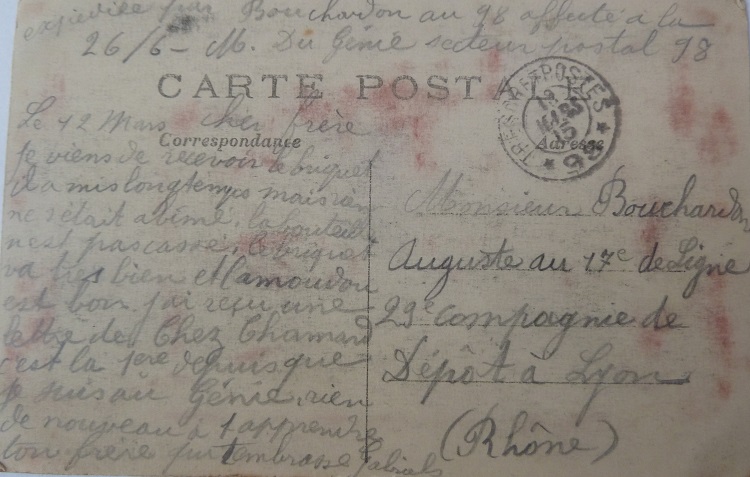 expédiée par Bouchardon au 98 affecté à la
26/6 - M. Du Génie secteur postal 98
CARTE POSTALE
Correspondance
Le 12 Mars cher frère
Je viens de recevoir le briquet
il a mis longtemps mais rien
ne s'était abimé, la bouteille
n'est pas cassée, le briquet
va très bien et l'amoudou
est bon j'ai reçu une
lettre de Chez Chamard
c'est la 1ere depuis que
Je suis au Génie, rien
de nouveau à t'apprendre
ton frère qui t'embrasse
TRESOR ET POSTES
MARS
15
* 98 *
Adresse
Monsieur Bouchardon
Auguste au 17e de Ligne
29e compagnie de
Dépôt à Lyon
(Rhône)